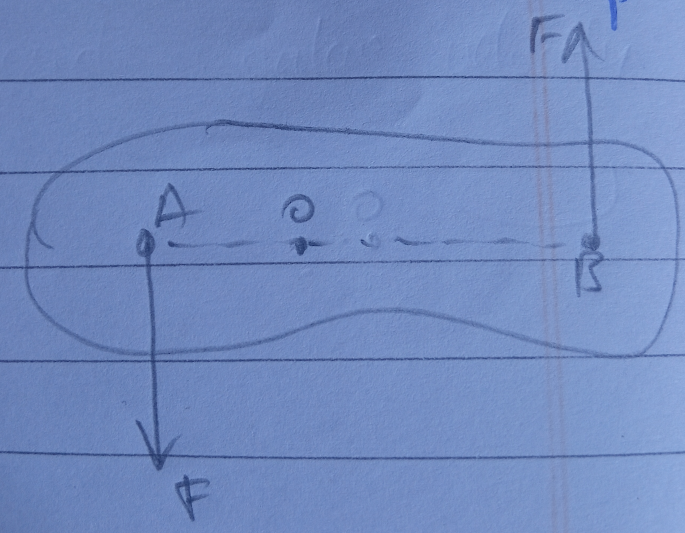 F
A O O
B
F